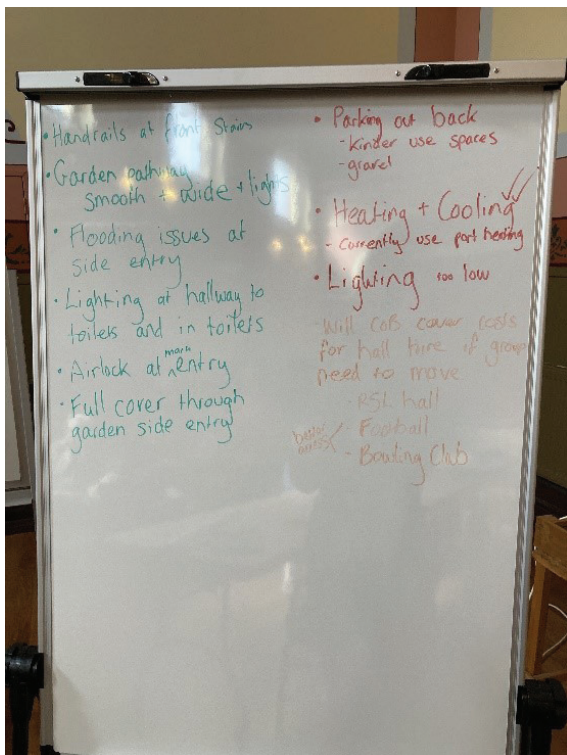 • Handrails at front Stairs
• Garden pathway
smooth + wide + lights
• Flooding issues at
side entry
• Lighting at hallway to
toilets and in toilets
• Airlock at main entry
• Full cover through
garden side entry
• Parking out back
- Kinder use spaces
- gravel
• Heating + Cooling ✓✓
- Currently use port heating
• Lighting too low
Will CoB cover costs
for hall hire if group
need to move
- RSL hall
- Football
- Bowling Club